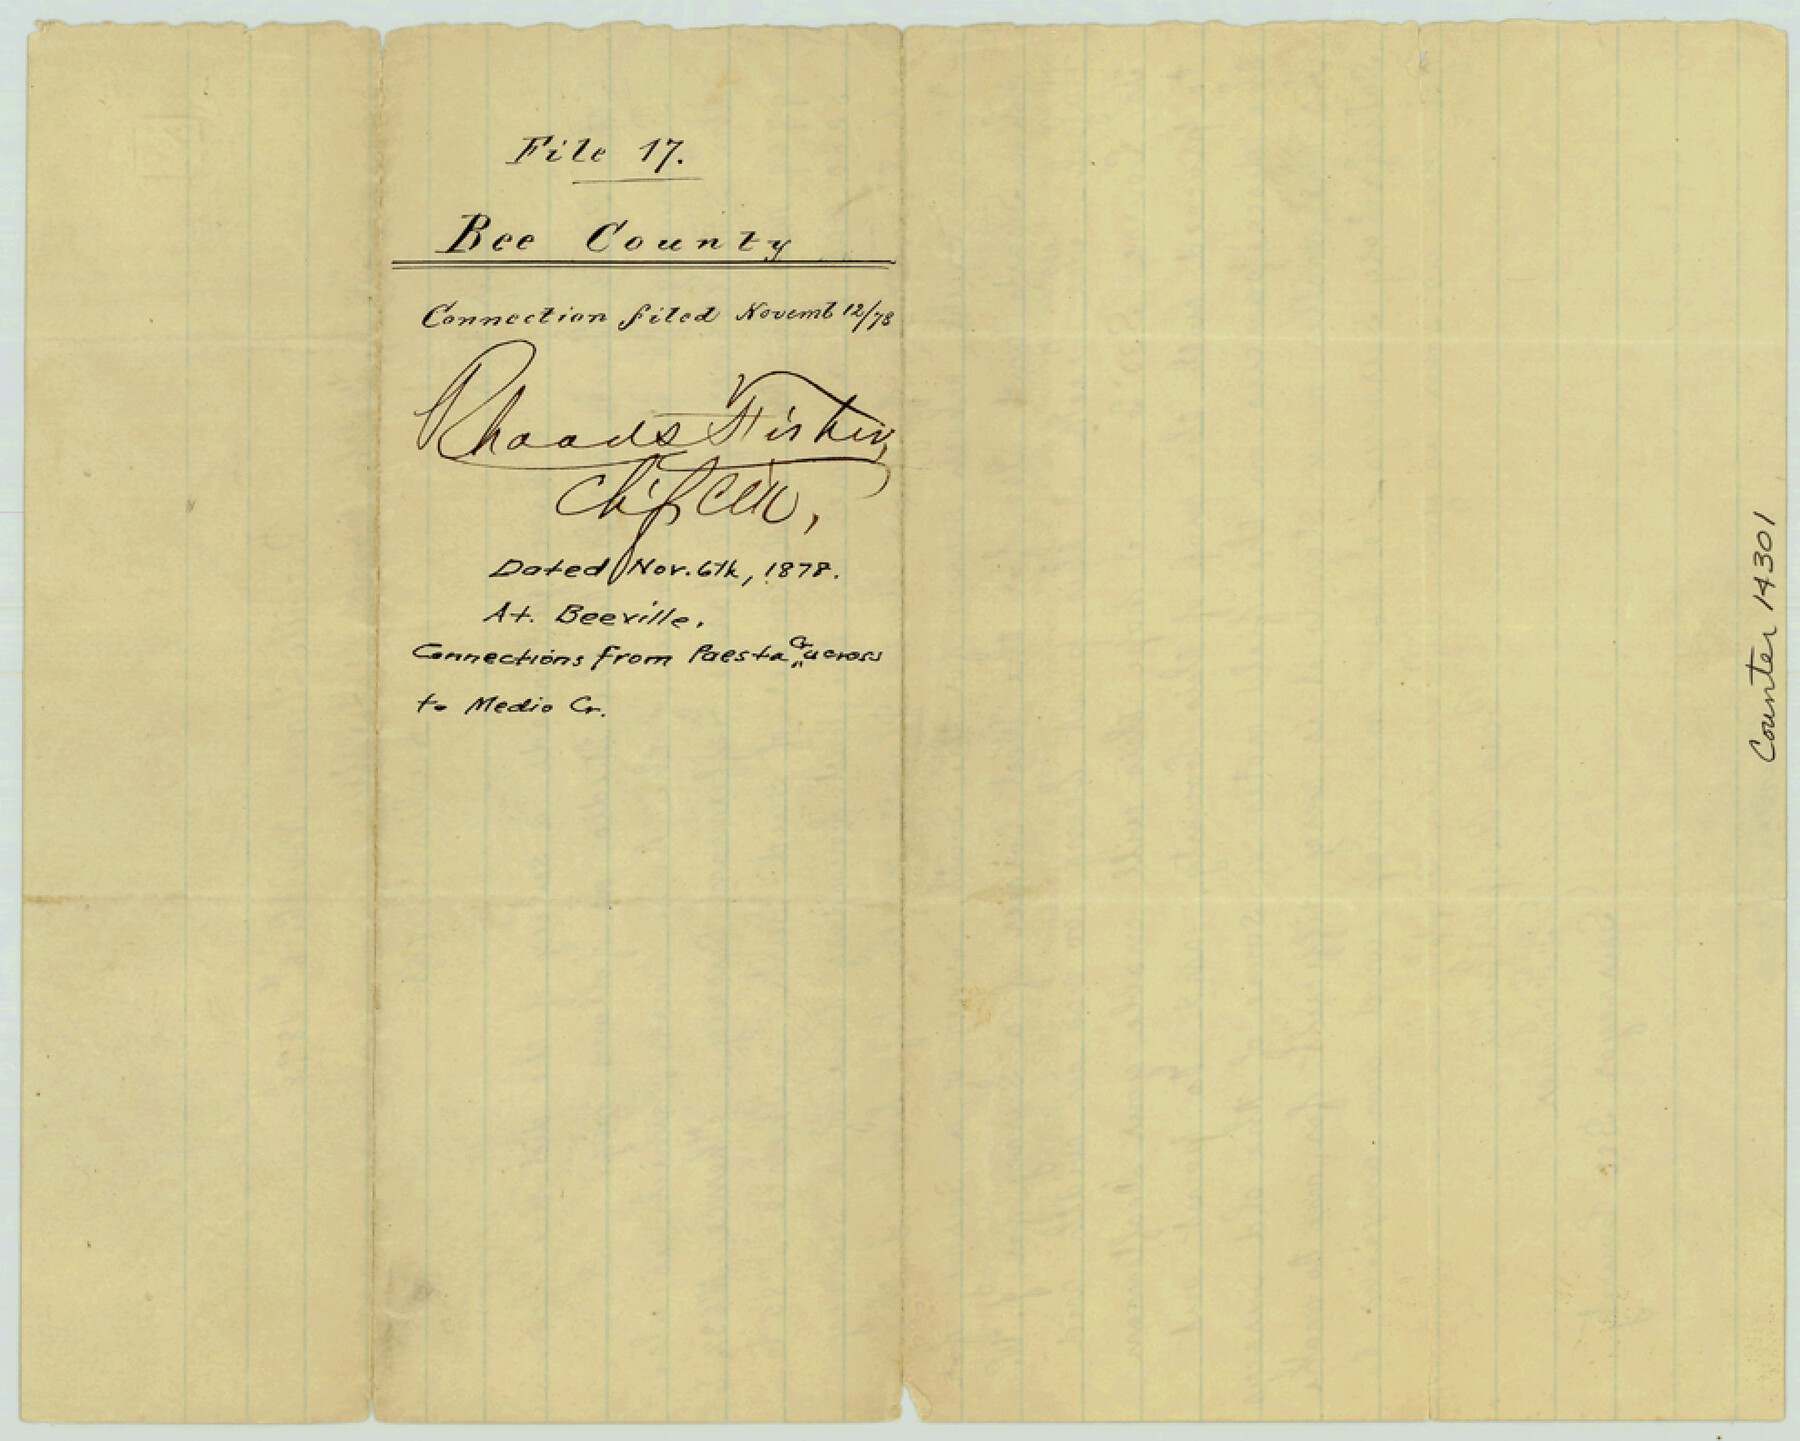 File 17.
Bee County
Connection filed Novemb 12/78
Rhoads Fisher,
Chf Clk,
Dated Nov. 6th, 1878.
At. Beeville.
Connections from Paesta Cr. across
to Medio Cr.
Counter 14301